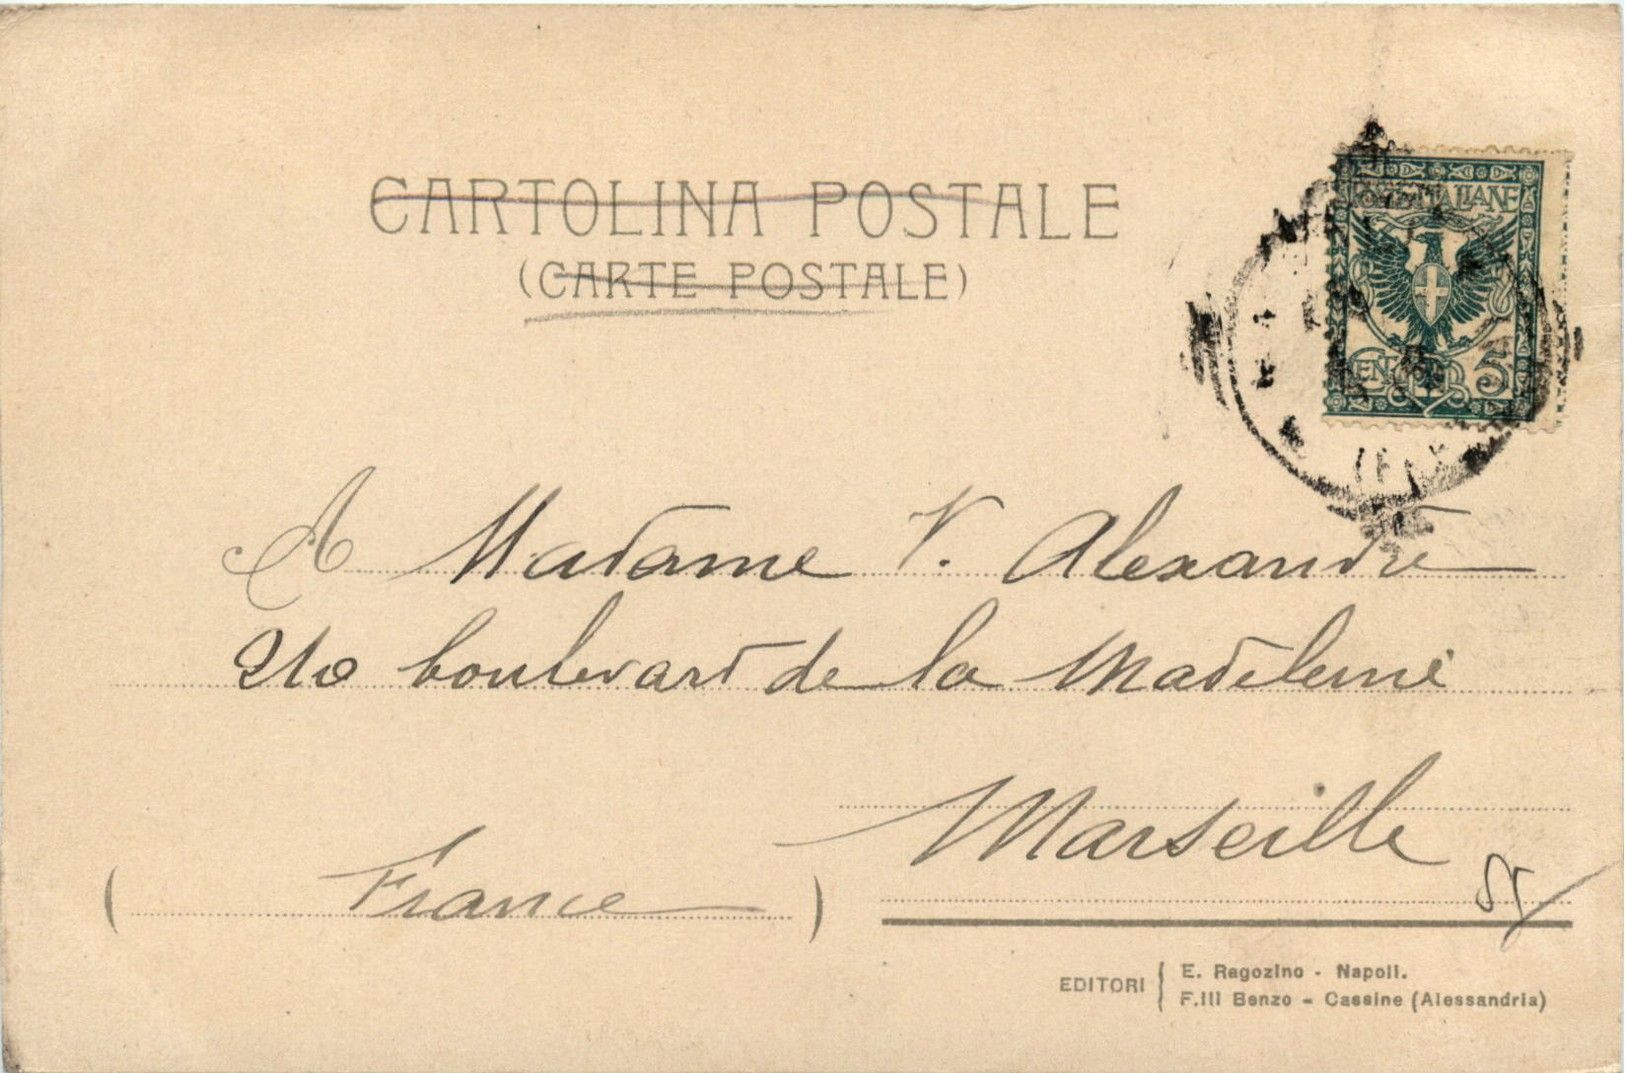 CARTOLINA POSTALE
(CARTE POSTALE)
POSTE ITALIANE
CENT. 5
A Madame V. Alexandre
210 boulevard de la Madeleine
Marseille
(France)
EDITORI { E. Ragozino - Napoli.
F.lli Benzo - Cassine (Alessandria)